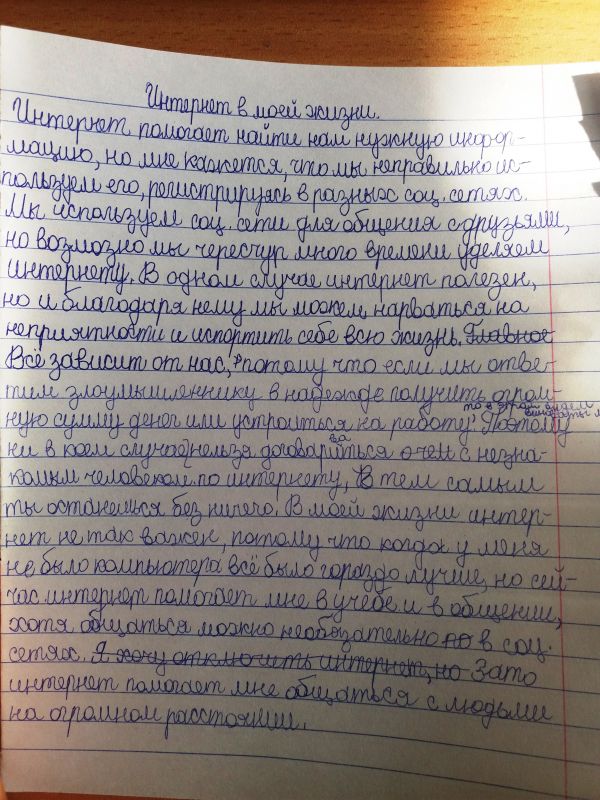 Интернет в моей жизни.
Интернет помогает найти нам нужную инфор-
мацию, но мне кажется, что мы неправильно ис-
пользуем его, регистрируясь в разных соц. сетях.
Мы используем соц. сети для общения с друзьями,
но возмозно мы чересчур много времени уделяем
интернету. В одном случае интернет полезен,
но и благодаря нему мы можем нарваться на
неприятности и испортить себе всю жизнь. Главное
Всё зависит от нас, потому что если мы отве-
тим злоумышленнику в надежде получить огром-
то в этом будем виноваты м
ную сумму денег или устроиться на работу. Поэтому
ни в коем случае нельзя договариваться о чем с незна-
комым человеком по интернету, В тем самым
ты останешься без ничего. В моей жизни интер-
нет не так важен, потому что когда у меня
не было компьютера всё было гораздо лучше, но сей-
час интернет помогает мне в учебе и в общении,
хотя общаться можно необязательно но в соц.
сетях. Я хочу отключить интернет, но Зато
интернет помогает мне общаться с людьми
на огромном расстоянии.